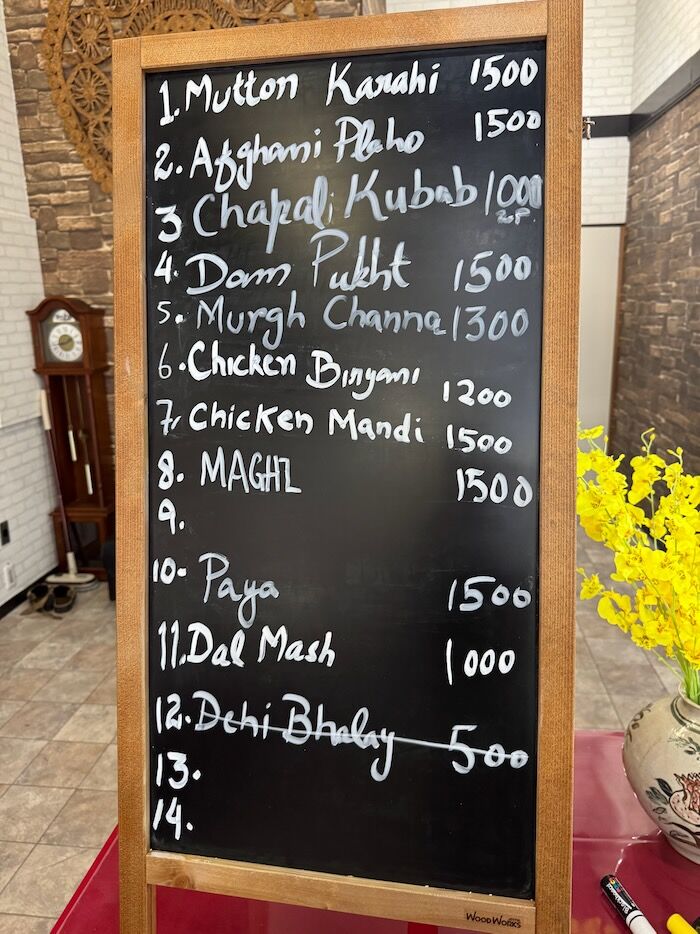 1. Mutton Karahi 1500
2. Afghani Plaho 1500
3 Chapali Kubab 1000
2P
4. Dam Pukht 1500
5. Murgh Channa 1300
6. Chicken Biryani 1200
7. Chicken Mandi 1500
8. MAGHZ 1500
9.
10- Paya 1500
11. Dal Mash 1000
12. Dehi Bhalay 500
13.
14.
WOODWORKS